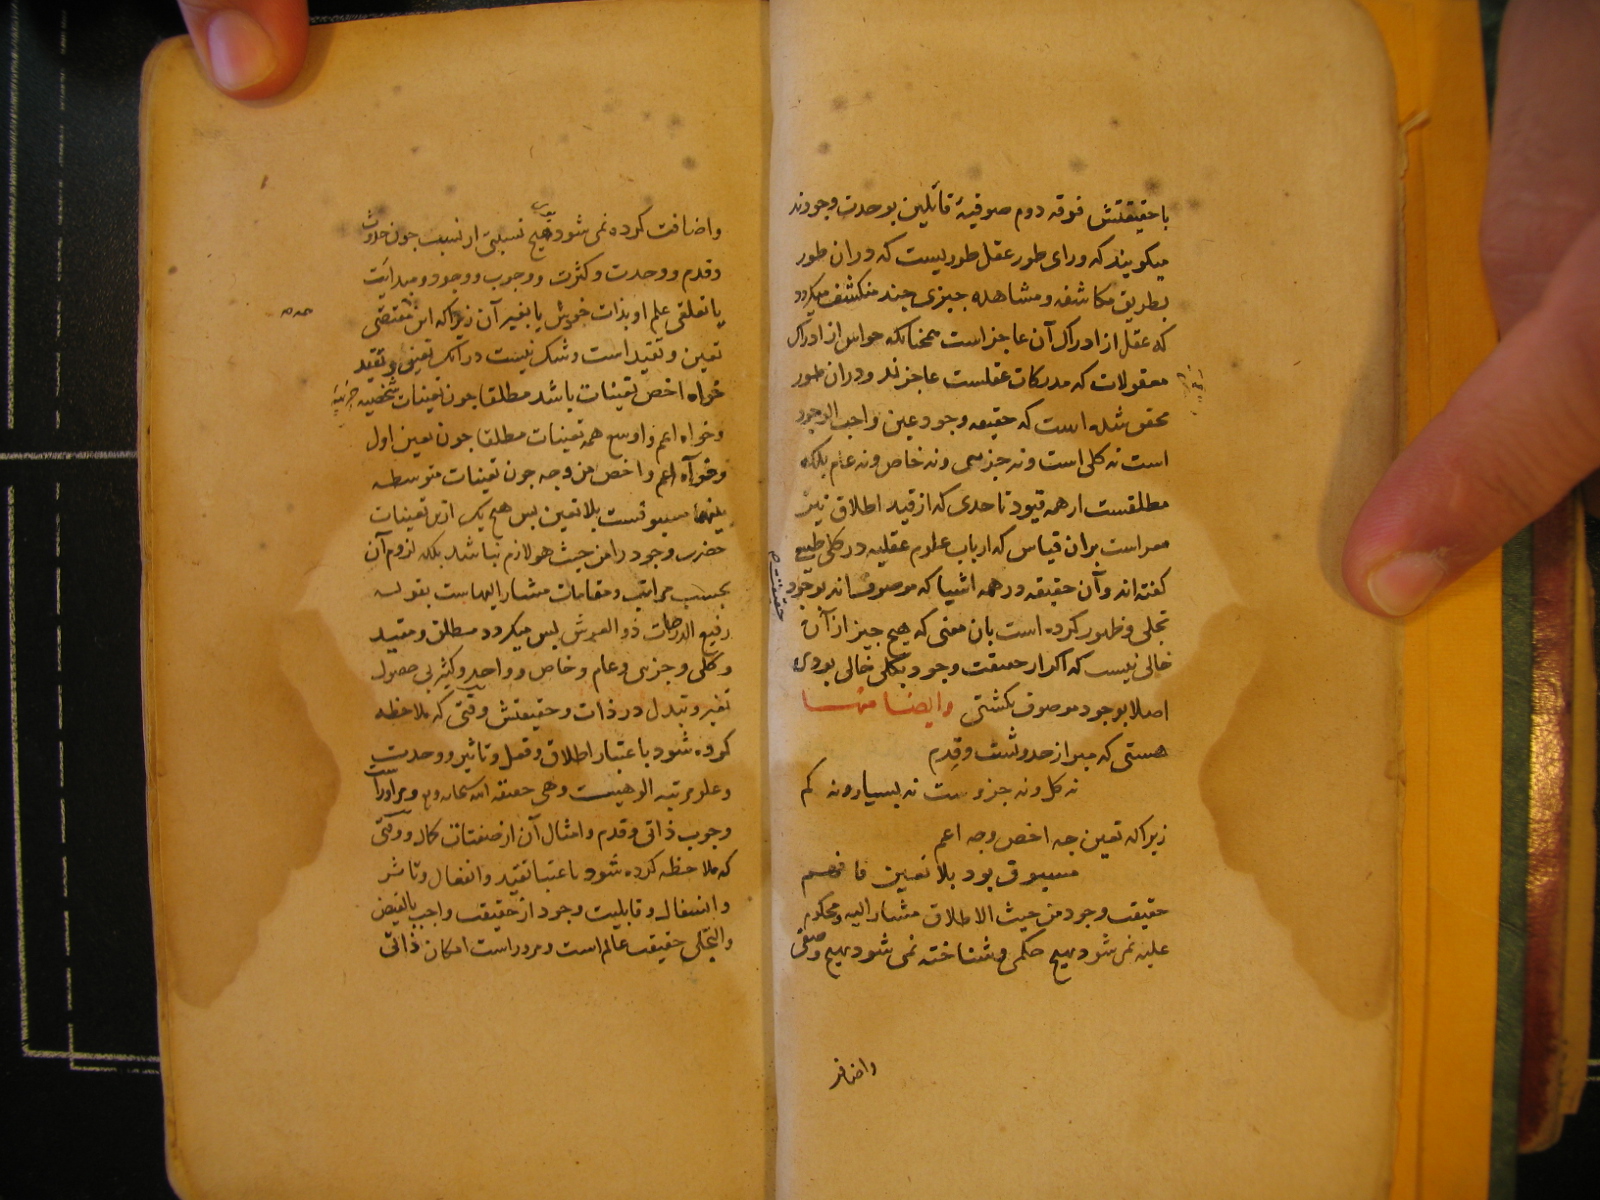 باحقیقتش فوقه دوم صوفیهٔ قائلین بوحدت وجودند
میکویند که ورای طور عقل طوریست که دران طور
بطریق مکاشفه و مشاهده جیزی جند منکشف میکردد
که عقل از ادراک آن عاجز است همجنانکه حواس از ادراک
معقولات که مدرکات عقلست عاجزند ودران طور
محقق شده است که حقیقه وجود عین واجب الوجود
است نه کلی است ونه جزسی ونه خاص ونه عام بلکه
مطلقست از همه قیود تا حدی که از قید اطلاق نیز
معراست بران قیاس که ارباب علوم عقلیه در کلی طبیعی
کفته اند وآن حقیقه در همه اشیا که موصوف اند بوجود
حقیقت
تجلی وظهور کرده است بان معنی که هیج جیز از آن
خالی نیست که اکر از حقیقت وجود بکلی خالی بودی
اصلا بوجود موصوف نکشتی وایضا منها
هستی که مبرا ز حدوثست وقِدم
نه کل ونه جزوست نه بسیار ونه کم
زیراکه تعین جه اخص وجه اعم
مسبوق بود بلا تعین فافهم
حقیقت وجود من حیث الاطلاق مشار الیه ومحکوم
علیه نمی شود بهیج حکمی وشناخته نمی شود بهیج وصفی
واضافر
واضافت کرده نمی شود بهیج نسبتی از نسب جون حدوث
وقدم ووحدت وکثرت ووجوب ووجود ومبدائیت
یا تعلقی علم او بذات خویش یا بغیر آن زیراکه این مقتضی
تعین وتقید است وشک نیست در آنک تعینی وتقید
خواه اخص تعینات باشد مطلقا جون تعینات شخصیه جزئیه
وخواه اعم واوسع همه تعینات مطلقا جون تعین اول
وخواه اعم واخص من وجه جون تعینات متوسطه
بینهما مسبوقست بلا تعین بس هیج یک ازین تعینات
حضرت وجود را من حیث هو لازم نباشد بلکه لزوم آن
بحسب مراتب ومقامات مشار الیهاست بقوله
رفیع الدرجات ذو العرش بس میکردد مطلق ومقید
وکلی وجزسی وعام وخاص وواحد وکثیر بی حصول
تغیر وتبدل در ذات وحقیقتش وقتی که ملاحظه
کرده شود باعتبار اطلاق وفعل وتاثیر ووحدت
وعلو مرتبه الوهیست وهی حقیقه الله سبحانه ومر اوراست
وجوب ذاتی وقدم وامثال آن از صفتات کمال ووقتی
که ملاحظه کرده شود باعتبا تقید وانفعال وتاثر
وانتقال وقابلیت وجود از حقیقت واجب بالفیض
والتجلی حقیقت عالم است ومر وراست امکان ذاتی